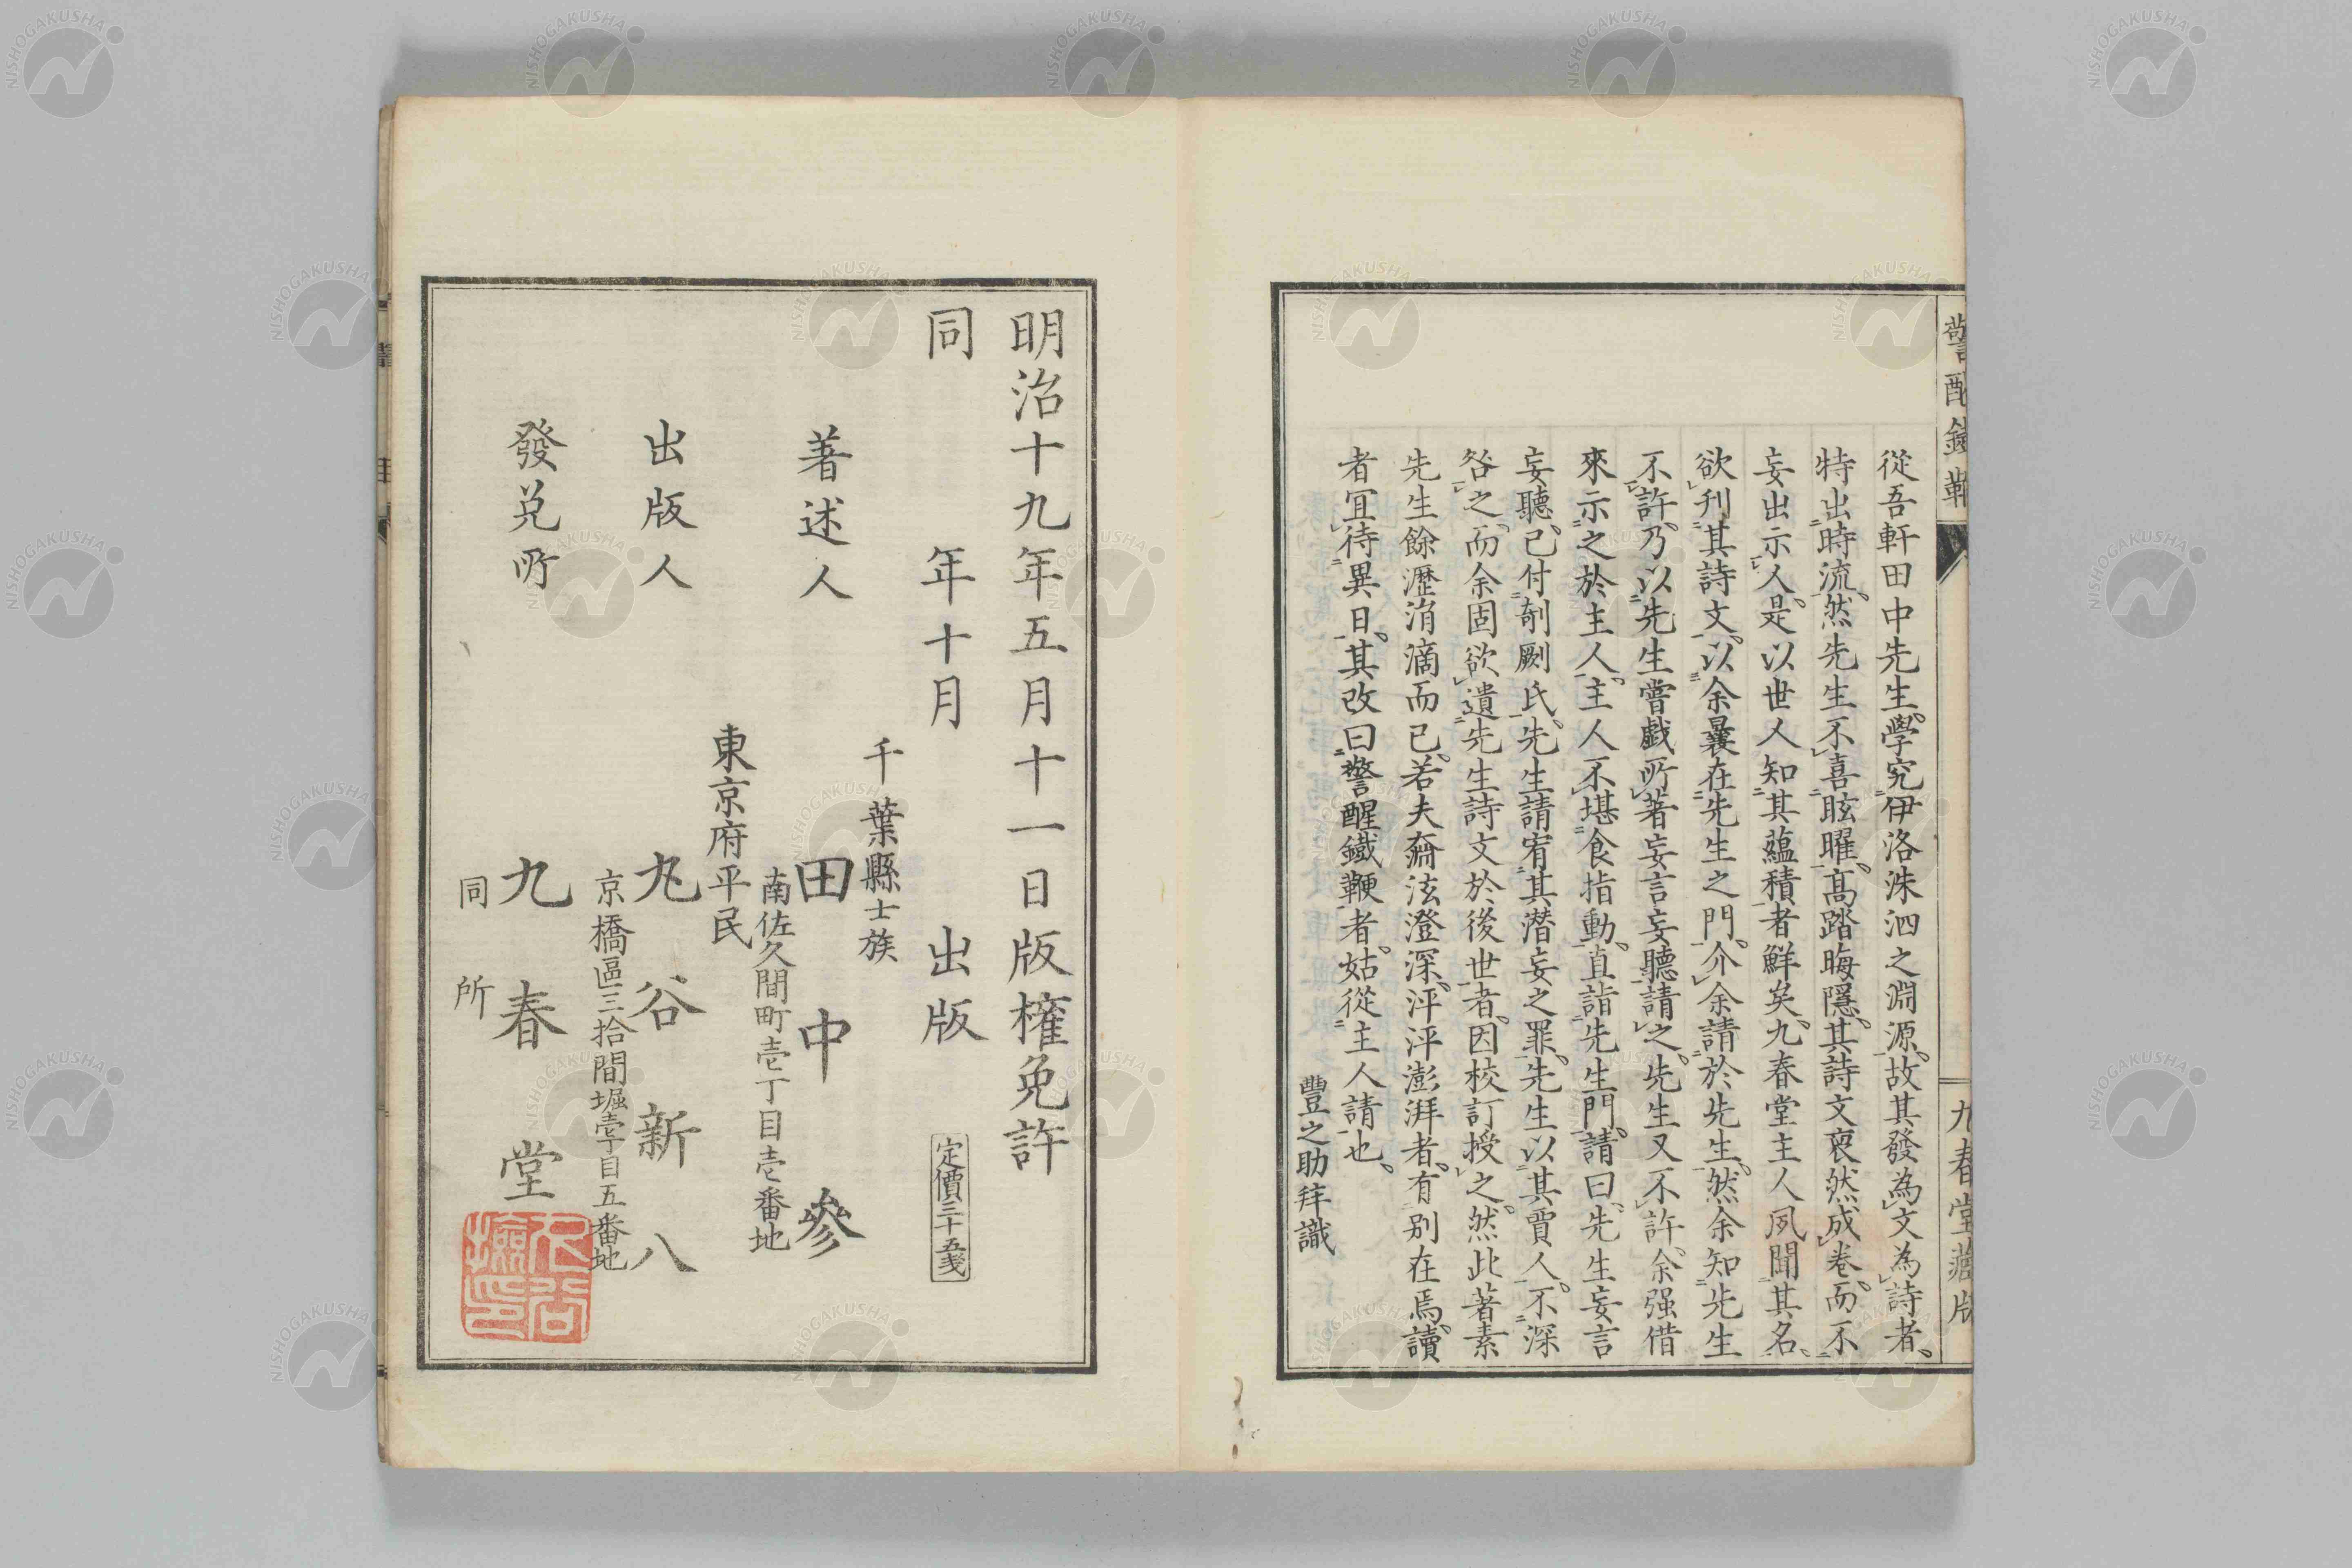 警醒鐵鞭
九春堂藏版
從吾軒田中先生學究伊洛洙泗之淵源故其發為文為詩者
特出時流然先生不喜眩曜高踏晦隱其詩文裒然成卷而不
妄出示人是以世人知其蘊積者鮮矣九春堂主人夙聞其名
欲刊其詩文以余曩在先生之門介余請於先生然余知先生
不許乃以先生嘗戲所著妄言妄聽請之先生又不許余强借
來示之於主人主人不堪食指動直詣先生門請曰先生妄言
妄聽已付剞劂氏先生請宥其潜妄之罪先生以其賈人不深
咎之而余固欲遺先生詩文於後世者因校訂授之然此著素
先生餘瀝涓滴而已若夫奫泫澄深泙泙澎湃者有别在焉讀
者宜待異日其改曰警醒鐵鞭者姑從主人請也
豐之助拜識
明治十九年五月十一日版權免許
同年十月出版
定價三十五戔
千葉縣士族
著述人 田中參
南佐久間町壱丁目壱番地
東京府平民
出版人 丸谷新八
京橋區三拾間堀壱丁目五番地
發兌所 九春堂
同所
NISHOGAKUSHA